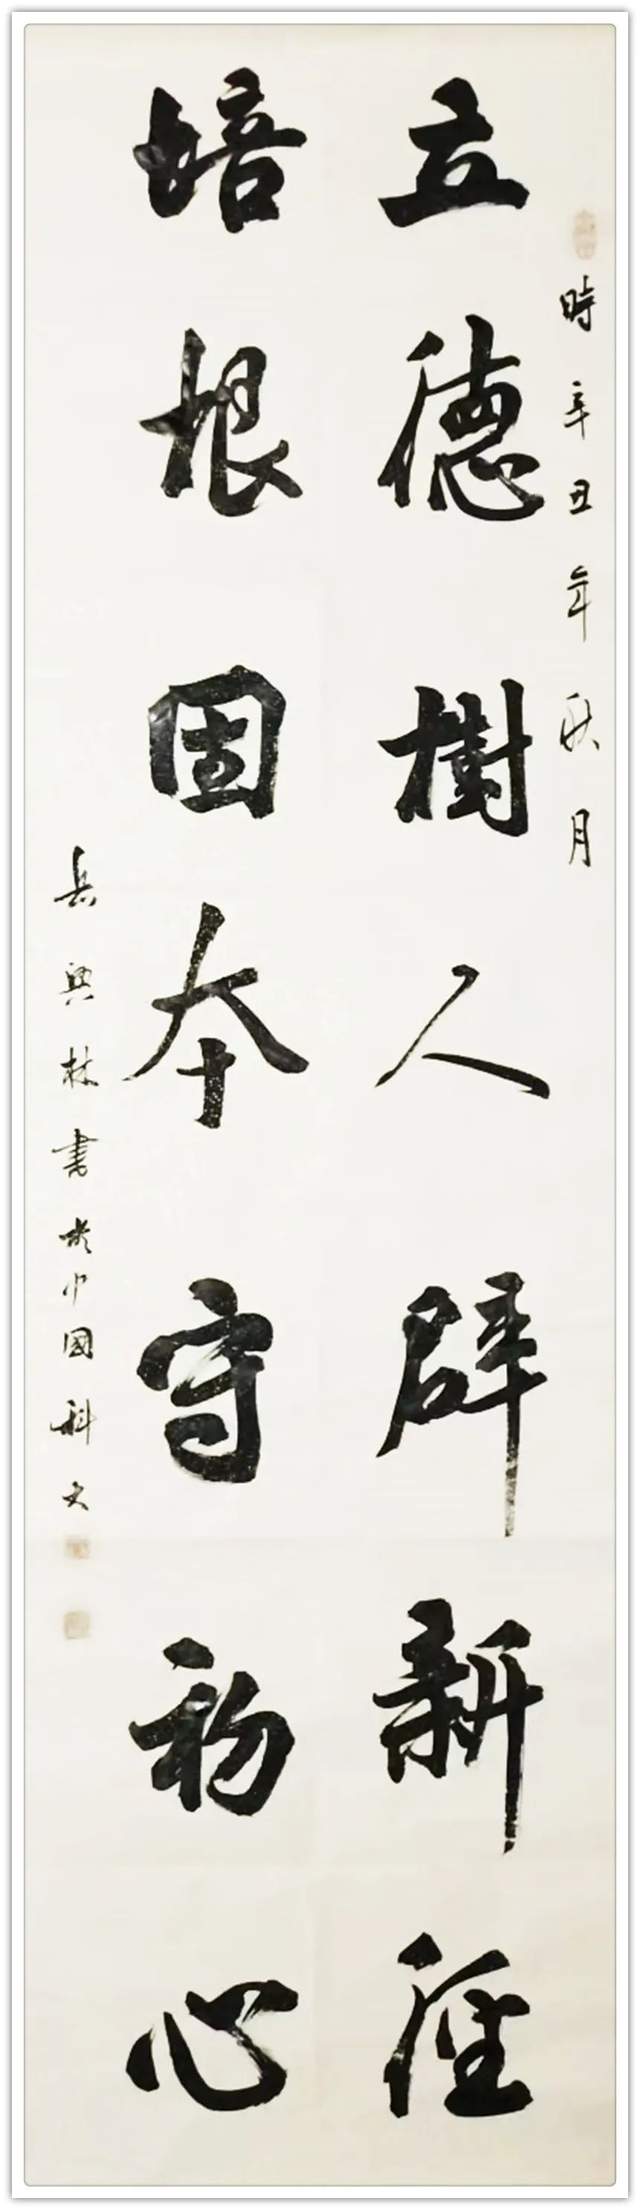 時辛丑年秋月
立德樹人辟新徑
培根固本守初心
岳興林書於中國科大